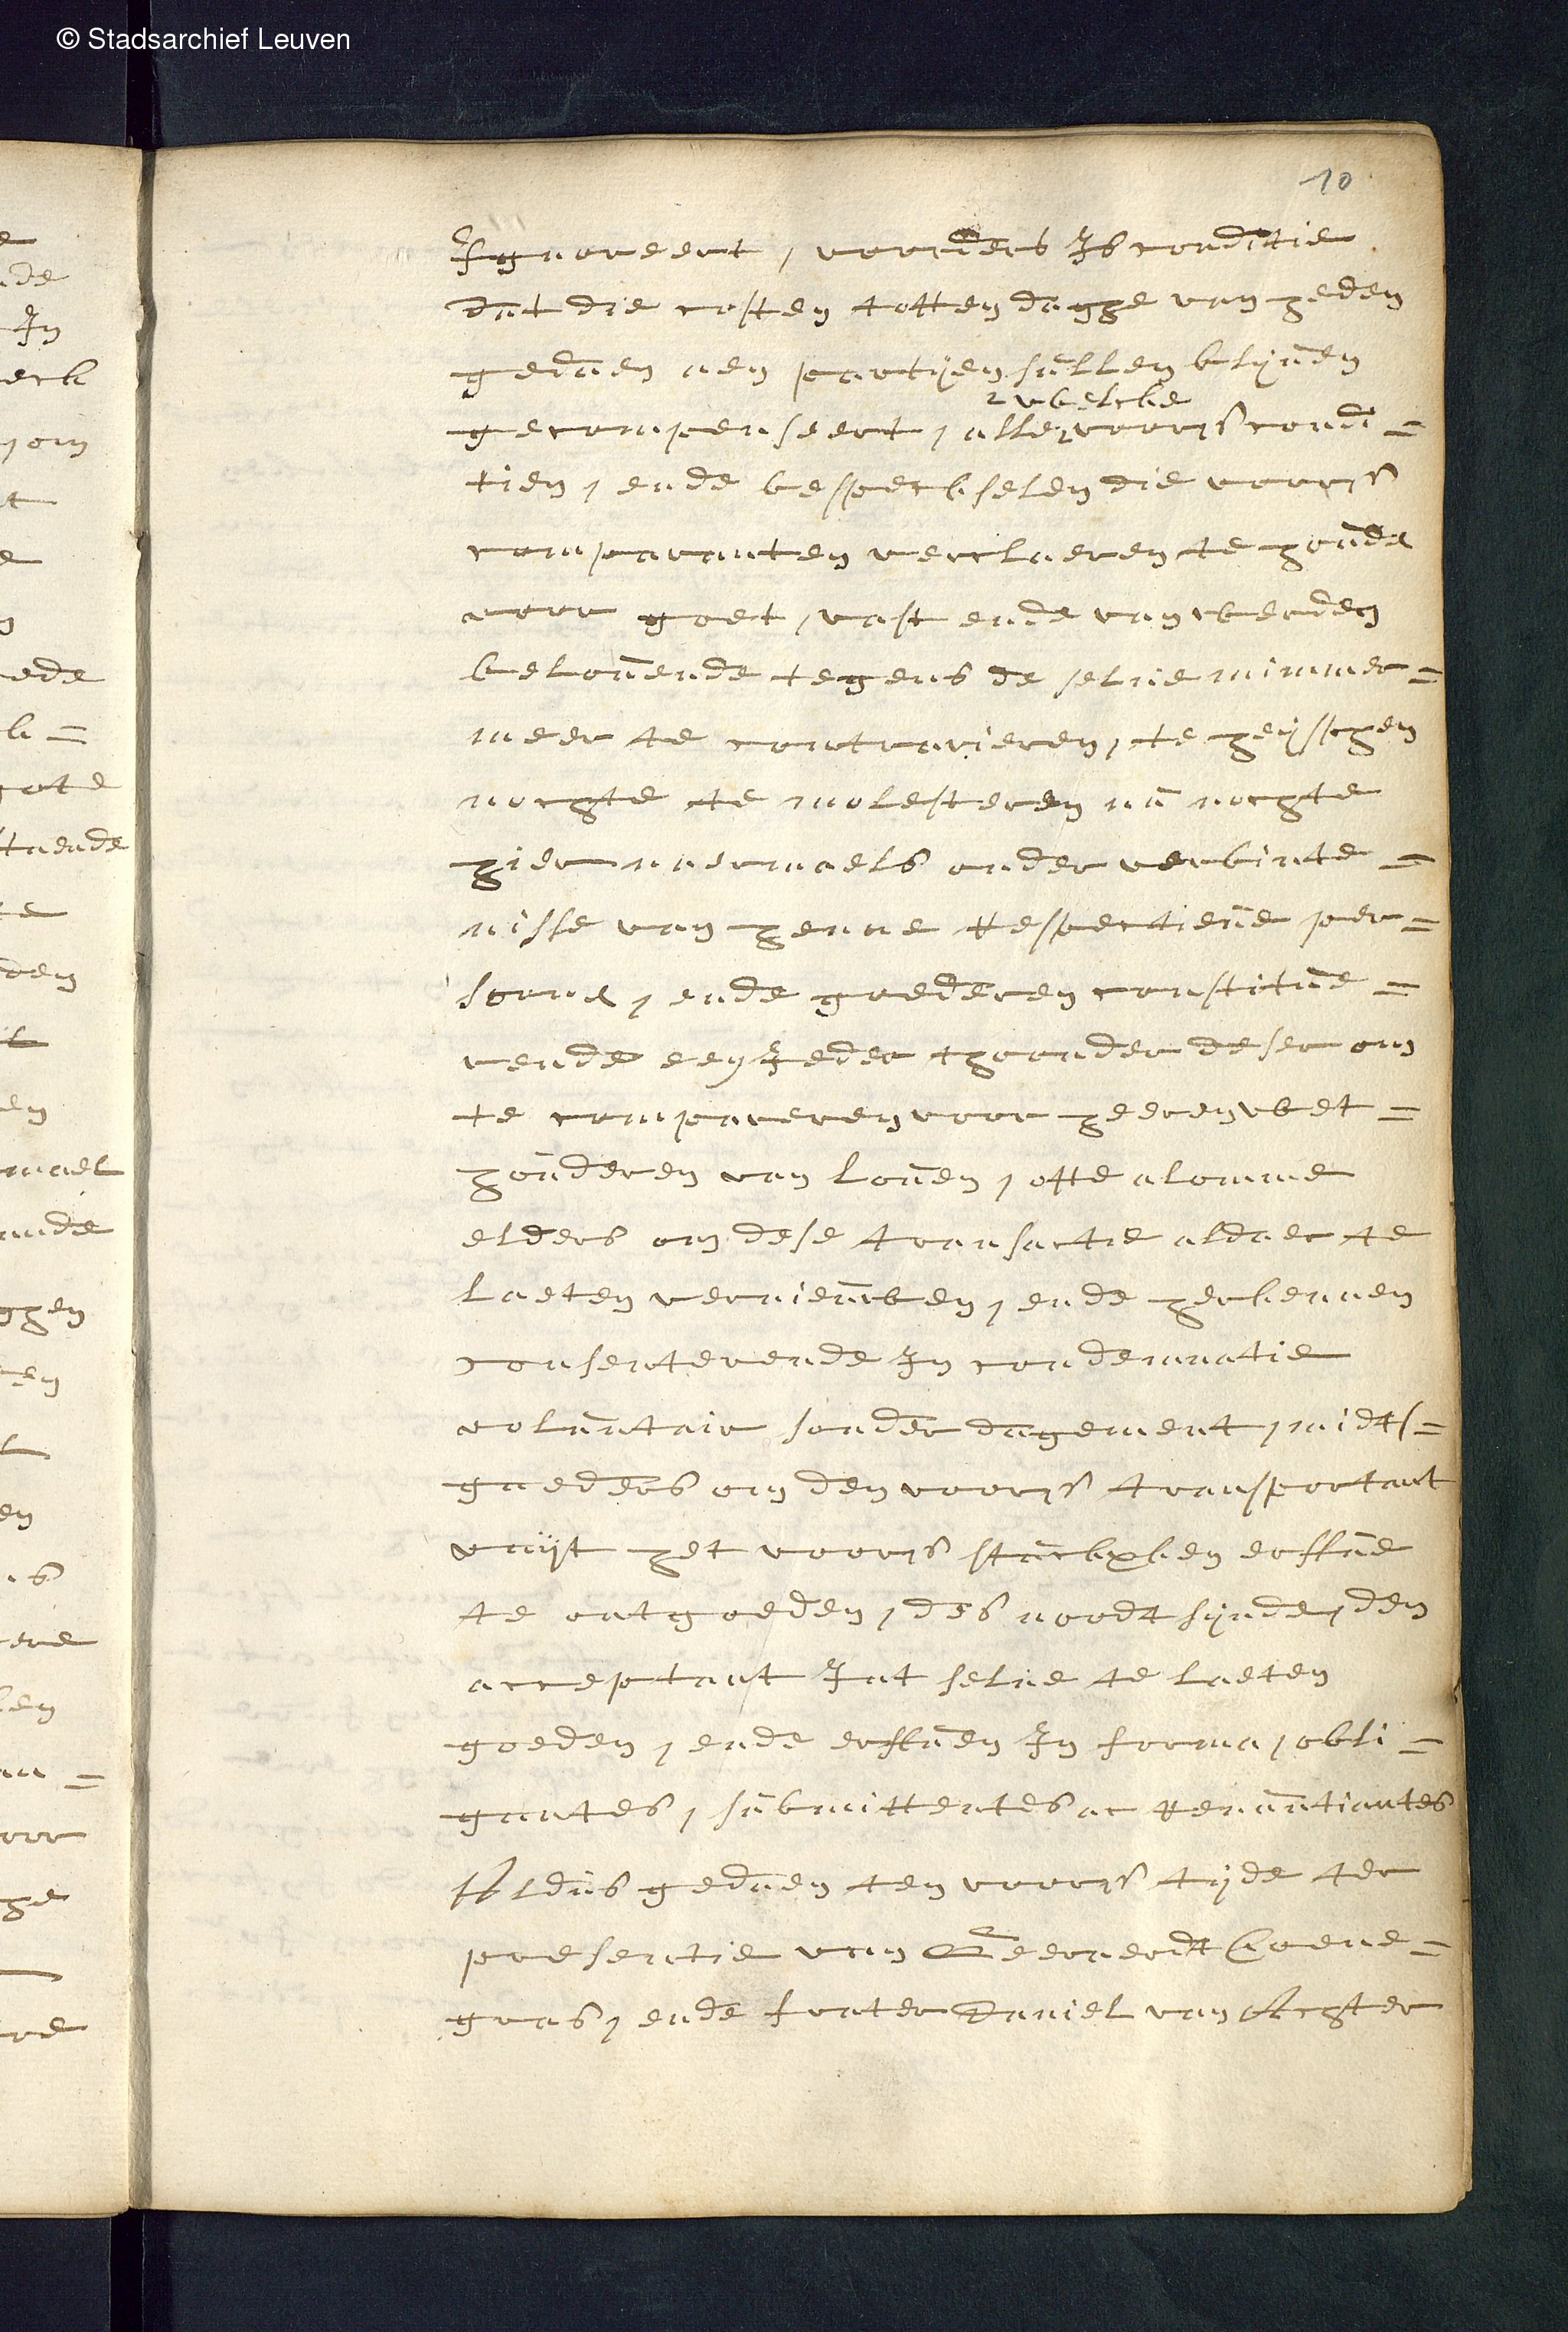 © Stadsarchief Leuven
10
Ignoreert, voorders Is conditie
dat die costen totten daghe van heden
gedaen aen partijen sullen blijven
welcke
gecompenseert, alle voors condi=
tien, ende bespreckselen die voors
comparanten verclaeren te houden
voor goet, vast ende van weerden
gelovende tegens de selve nimmer=
meer te contrarieren, te heysschen
nochte te molesteren nu nochte
hier naermaels onder verbinte=
nisse van henne respective per=
soonen, ende goederen constitue=
rende een Ieder thoonder deser om
te compareren voor heeren wet=
houderen van Loven, ofte alomme
elders om dese transactie aldaer te
laeten vernieuwen, ende herkennen
consenterende In condemnatie
voluntair sonder dagement, midts=
gaeders om den voors transportant
vuijt het voors stucxken erffve
te ontgoeden, des noodt sijnde, den
acceptant Int selve te laeten
goeden, ende erffven In forma, obli=
gantes, submittentes ac renuntiantes
Aldus gedaen ten voors tijde ter
presentie van Geeraerdt Coene=
gras, ende frater Daniel van Achter